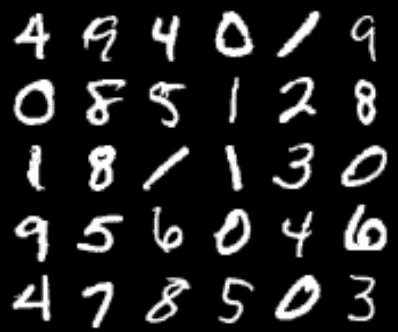 4 9 4 0 1 9
0 8 5 1 2 8
1 8 1 1 3 0
9 5 6 0 4 6
4 7 8 5 0 3